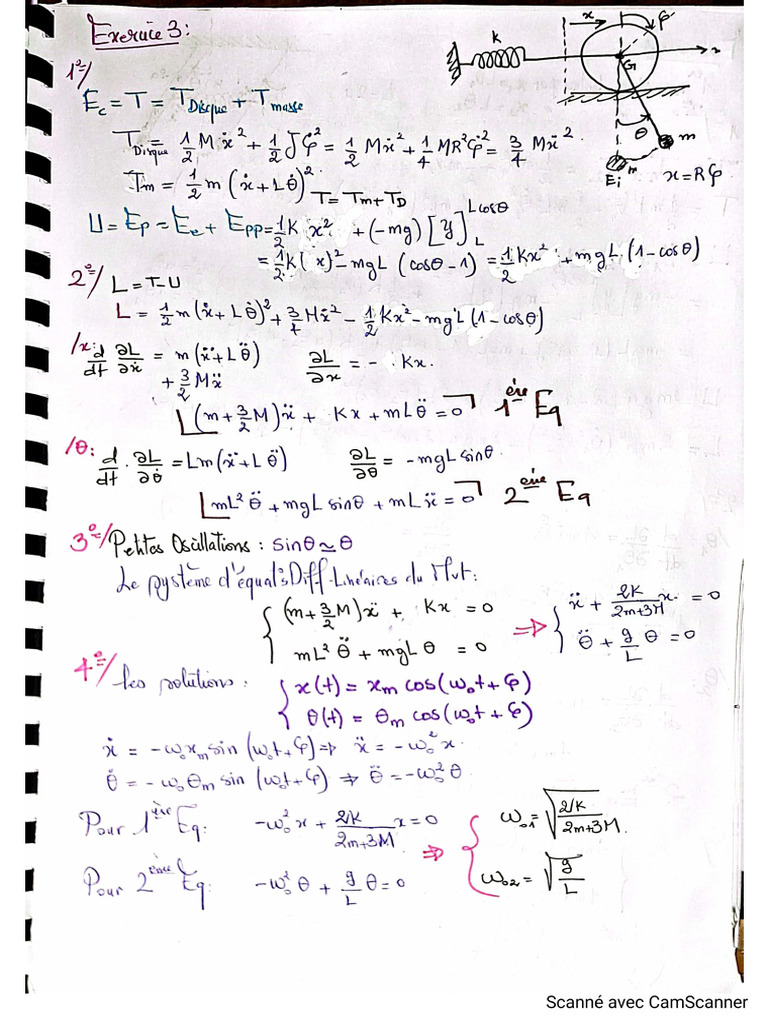 Exercice 3:
K
x
φ
G
x
θ
m
m
Ei
x = Rφ
1°/
Ec = T = TDisque + Tmasse
TDisque = 1/2 Mẋ² + 1/2 Jφ̇² = 1/2 Mẋ² + 1/4 MR²φ̇² = 3/4 Mẋ²
Tm = 1/2 m (ẋ + Lθ̇)²   T = Tm + TD
U = Ep = Ee + Epp = 1/2 K x² + (-mg) [y]_L^{L cosθ}
= 1/2 K (x)² - mgL (cosθ - 1) = 1/2 Kx² + mgL (1 - cosθ)
2°/ L = T-U
L = 1/2 m (ẋ + Lθ̇)² + 3/4 Mẋ² - 1/2 Kx² - mgL (1 - cosθ)
/x: d/dt ∂L/∂ẋ = m(ẍ + Lθ̈) + 3/2 Mẍ   ∂L/∂x = - Kx.
(m + 3/2 M) ẍ + Kx + mLθ̈ = 0   1ère Eq
/θ: d/dt . ∂L/∂θ̇ = Lm (ẍ + Lθ̈)   ∂L/∂θ = - mgL sinθ.
mL² θ̈ + mgL sinθ + mL ẍ = 0   2ème Eq
3°/ Petites Oscillations : sinθ ≃ θ
Le système d'équat°s Diff-Linéaires du Mvt:
{ (m + 3/2 M) ẍ + Kx = 0   ⇒ { ẍ + 2K/(2m+3M) x = 0
mL² θ̈ + mgL θ = 0   θ̈ + g/L θ = 0
4°/ Les solutions : { x(t) = xm cos(ω₀t + φ)
θ(t) = θm cos(ω₀t + φ)
ẋ = -ω₀xm sin (ω₀t + φ) ⇒ ẍ = -ω₀² x.
θ̇ = -ω₀ θm sin (ω₀t + φ) ⇒ θ̈ = -ω₀² θ
Pour 1ère Eq: -ω₀² x + 2K/(2m+3M) x = 0   ⇒ { ω₀₁ = √(2K/(2m+3M)).
Pour 2ème Eq: -ω₀² θ + g/L θ = 0   ω₀₂ = √(g/L)
Scanné avec CamScanner